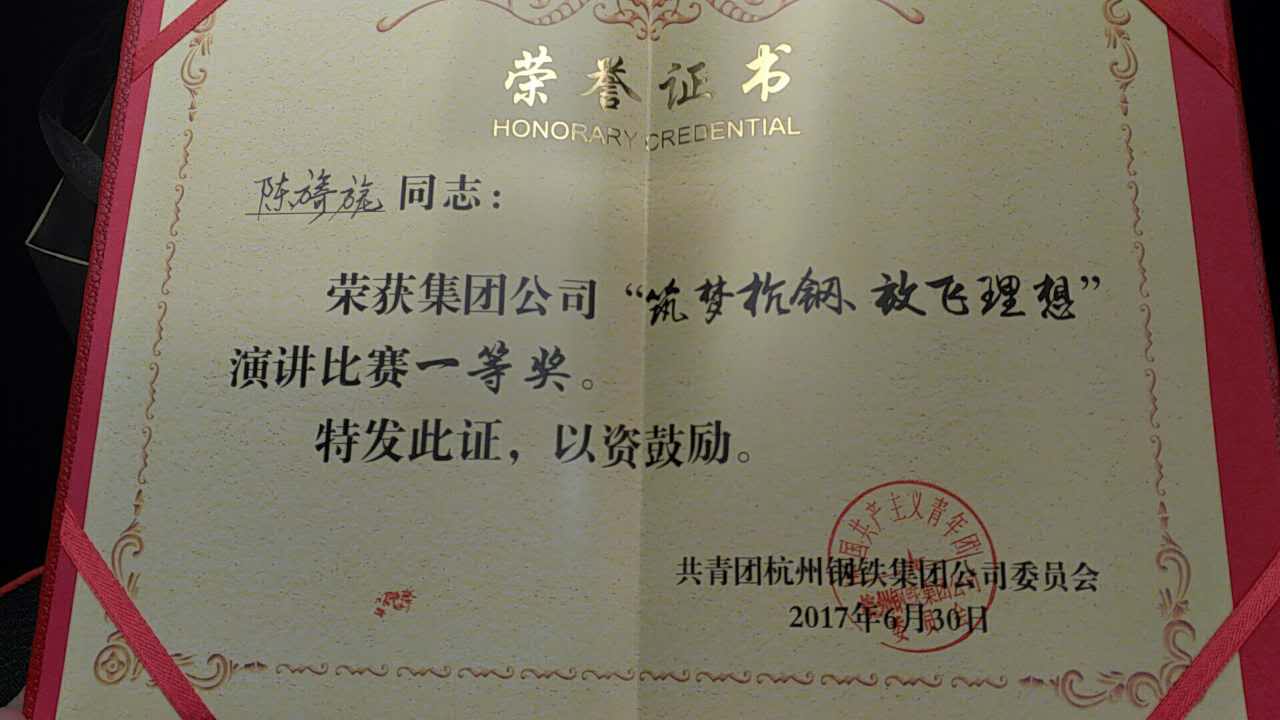 荣誉证书
HONORARY CREDENTIAL
陈旖旎 同志：
荣获集团公司“筑梦杭钢、放飞理想”
演讲比赛一等奖。
特发此证，以资鼓励。
共青团杭州钢铁集团公司委员会
2017年6月30日